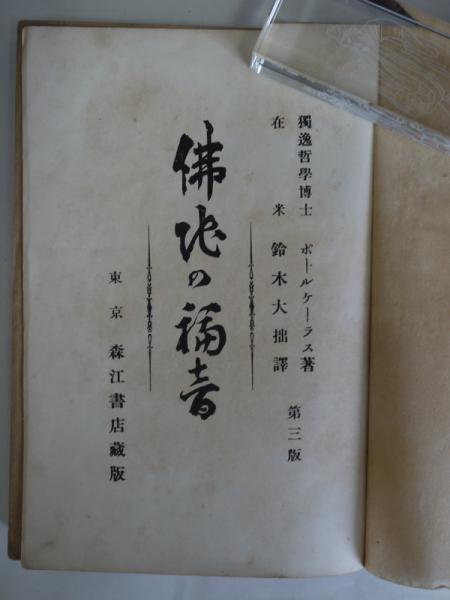 獨逸哲學博士 ポールケーラス著
在米 鈴木大拙譯
第三版
佛陀の福音
東京 森江書店藏版